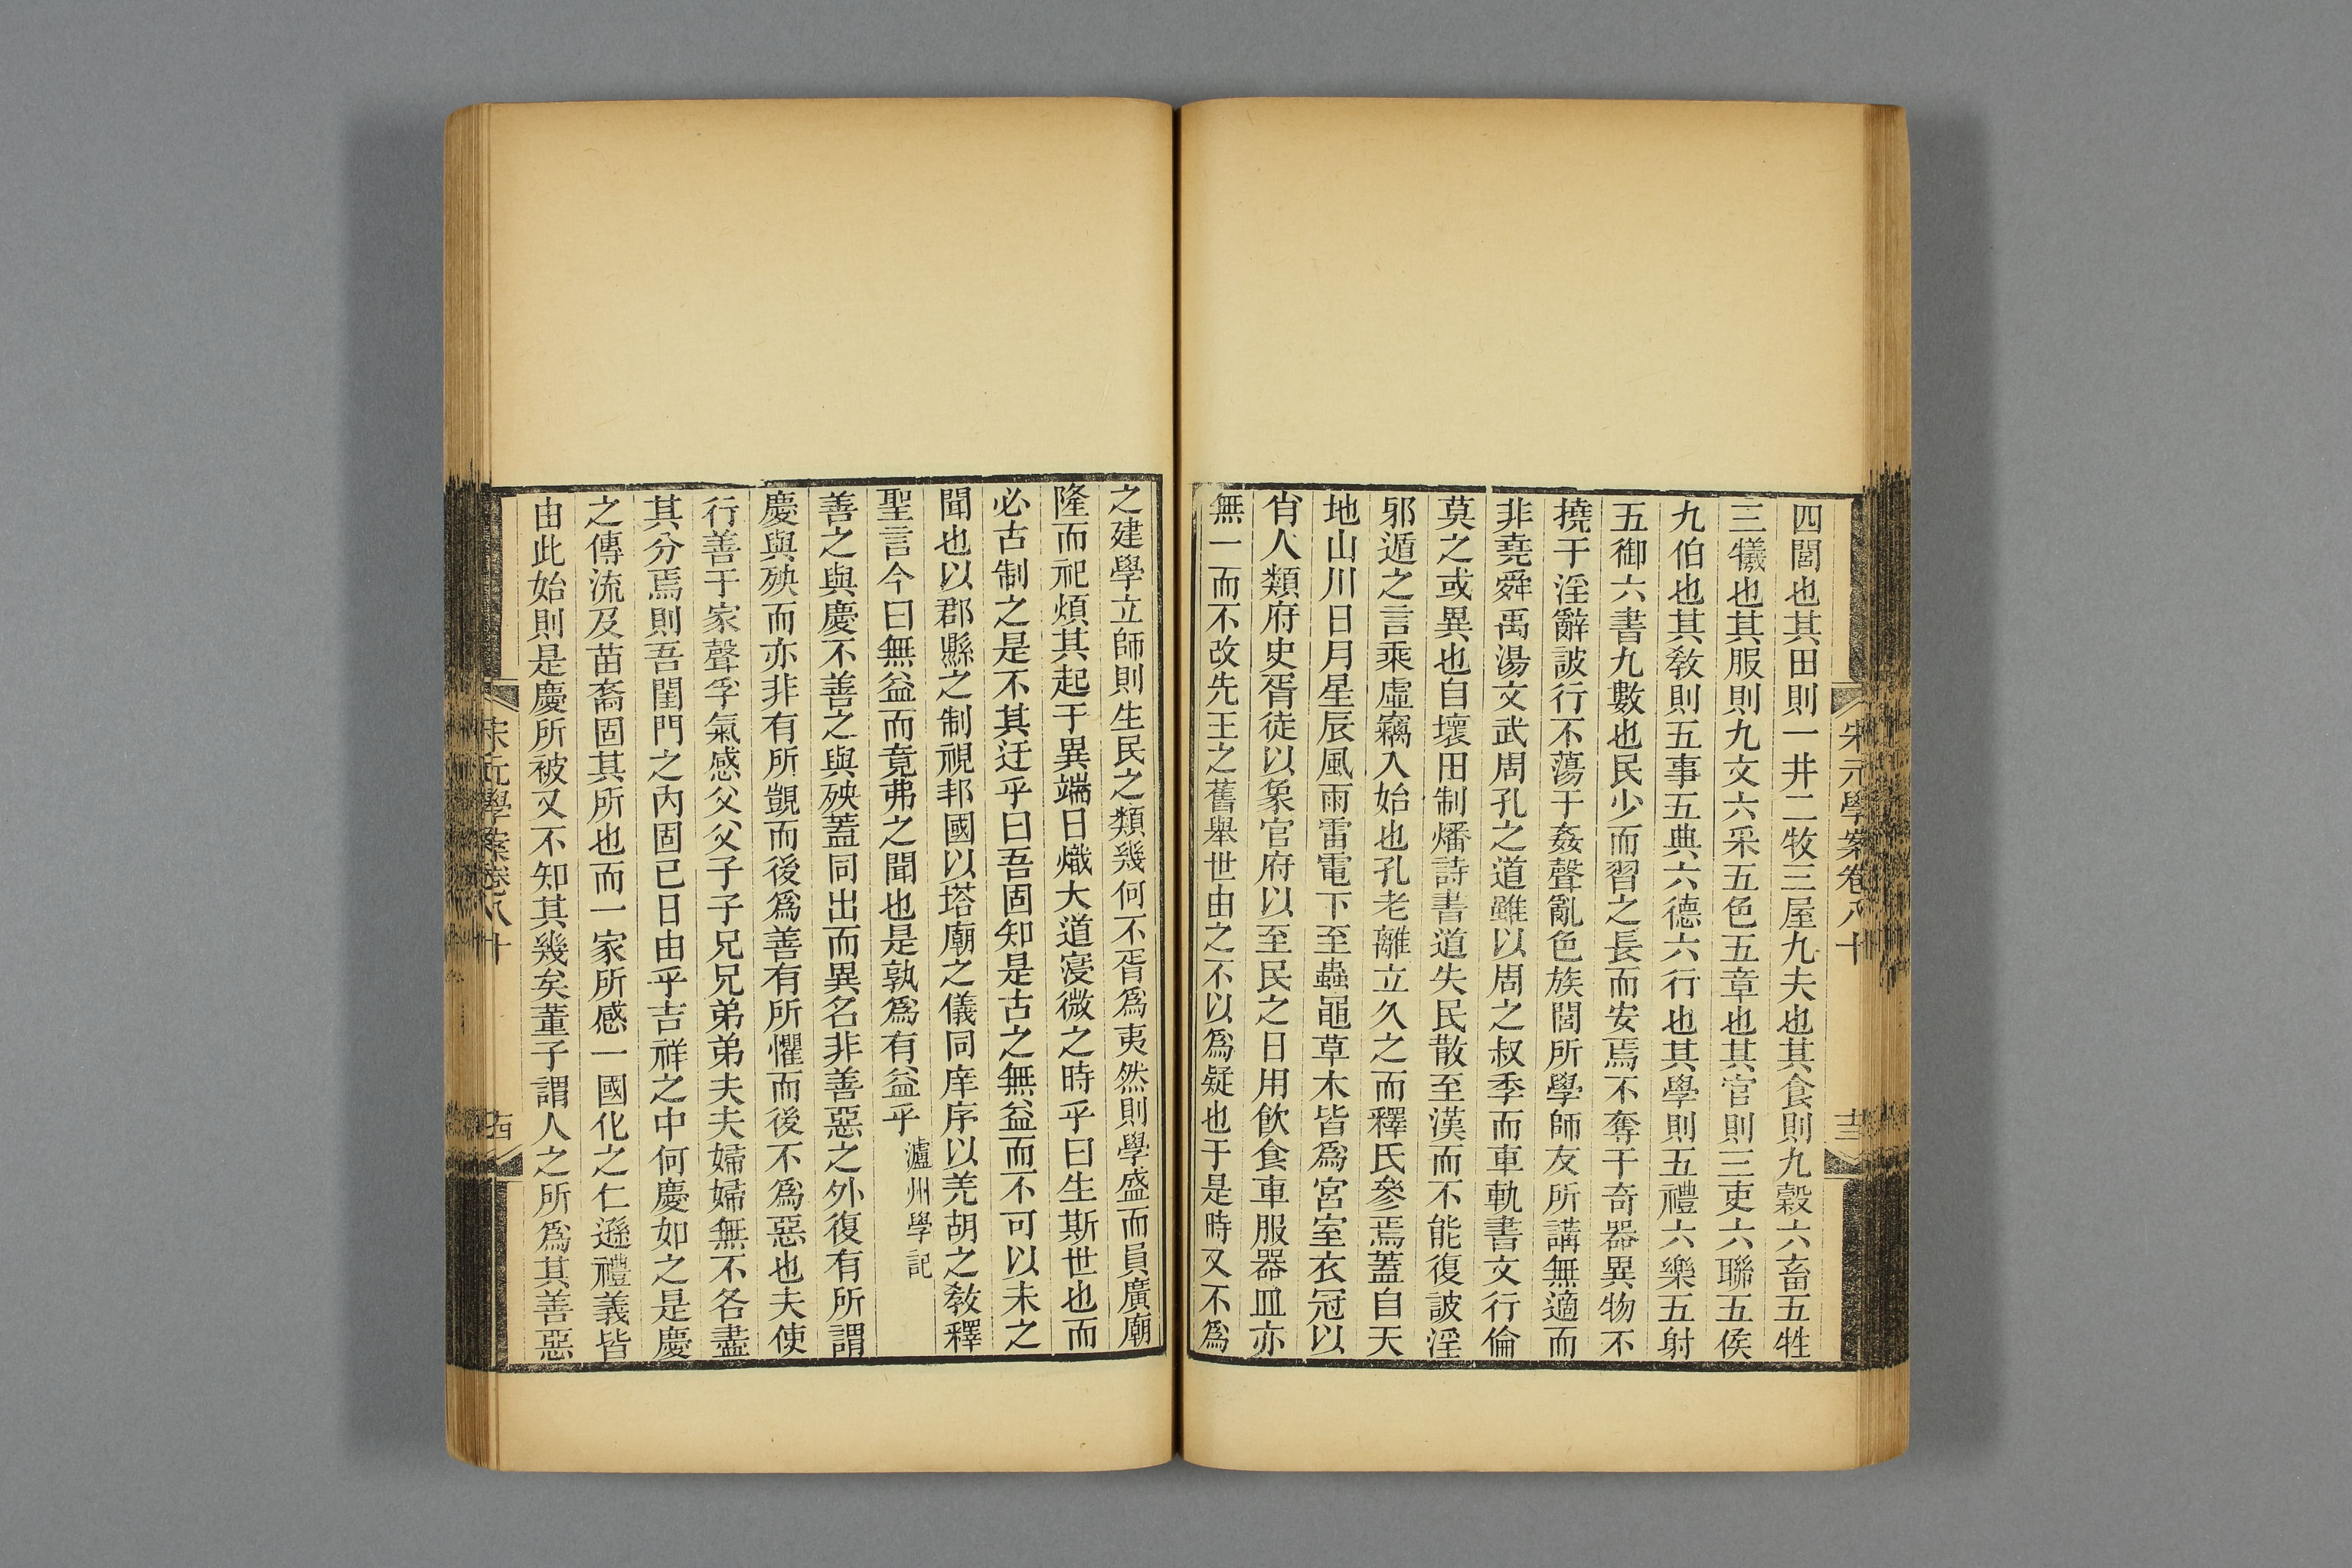 宋元學案卷八十
十三
四閭也其田則一井二牧三屋九夫也其食則九穀六畜五牲
三犧也其服則九文六采五色五章也其官則三吏六聯五侯
九伯也其敎則五事五典六德六行也其學則五禮六樂五射
五御六書九數也民少而習之長而安焉不奪于奇器異物不
撓于淫辭詖行不蕩于姦聲亂色族閭所學師友所講無適而
非堯舜禹湯文武周孔之道雖以周之叔季而車軌書文行倫
莫之或異也自壞田制燔詩書道失民散至漢而不能復詖淫
邪遁之言乘虛竊入始也孔老離立久之而釋氏參焉蓋自天
地山川日月星辰風雨雷電下至蟲黽草木皆爲宮室衣冠以
肖人類府史胥徒以象官府以至民之日用飮食車服器皿亦
無一而不改先王之舊舉世由之不以爲疑也于是時又不爲
之建學立師則生民之類幾何不胥爲夷然則學盛而員廣廟
隆而祀煩其起于異端日熾大道寖微之時乎曰生斯世也而
必古制之是不其迂乎曰吾固知是古之無益而不可以未之
聞也以郡縣之制視邦國以塔廟之儀同庠序以羌胡之敎釋
聖言今曰無益而竟弗之聞也是孰爲有益乎 瀘州學記
善之與慶不善之與殃蓋同出而異名非善惡之外復有所謂
慶與殃而亦非有所覬而後爲善有所懼而後不爲惡也夫使
行善于家聲孚氣感父父子子兄兄弟弟夫夫婦婦無不各盡
其分焉則吾閨門之內固已日由乎吉祥之中何慶如之是慶
之傳流及苗裔固其所也而一家所感一國化之仁遜禮義皆
由此始則是慶所被又不知其幾矣董子謂人之所爲其善惡
宋元學案卷八十
十四